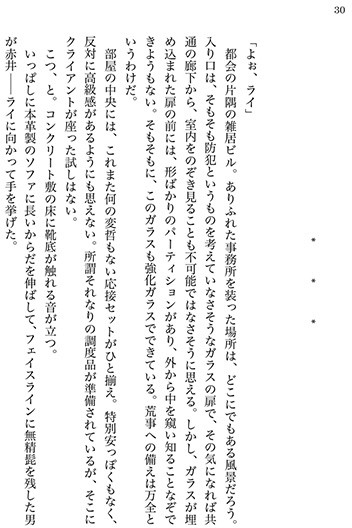 30
＊　＊　＊
「よぉ、ライ」
　都会の片隅の雑居ビル。ありふれた事務所を装った場所は、どこにでもある風景だろう。
入り口は、そもそも防犯というものを考えていなさそうなガラスの扉で、その気になれば共
通の廊下から、室内をのぞき見ることも不可能ではなさそうに思える。しかし、ガラスが埋
め込まれた扉の前には、形ばかりのパーティションがあり、外から中を窺い知ることなぞで
きようもない。そもそもに、このガラスも強化ガラスでできている。荒事への備えは万全と
いうわけだ。
　部屋の中央には、これまた何の変哲もない応接セットがひと揃え。特別安っぽくもなく、
反対に高級感があるようにも思えない。所謂それなりの調度品が準備されてあるが、そこに
クライアントが座った試しはない。
　こつ、と。コンクリート敷の床に靴底が触れる音が立つ。
　いっぱしに本革製のソファに長いからだを伸ばして、フェイスラインに無精髭を残した男
が赤井――ライに向かって手を挙げた。